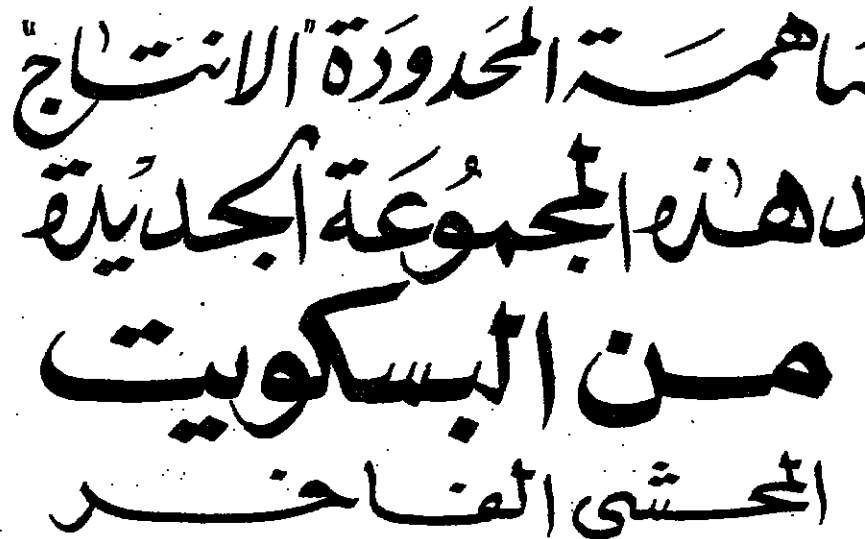 ساهمة المحدودة "الانتاج"
هذه المجموعة الجديدة
من البسكويت
المحشى الفاخر